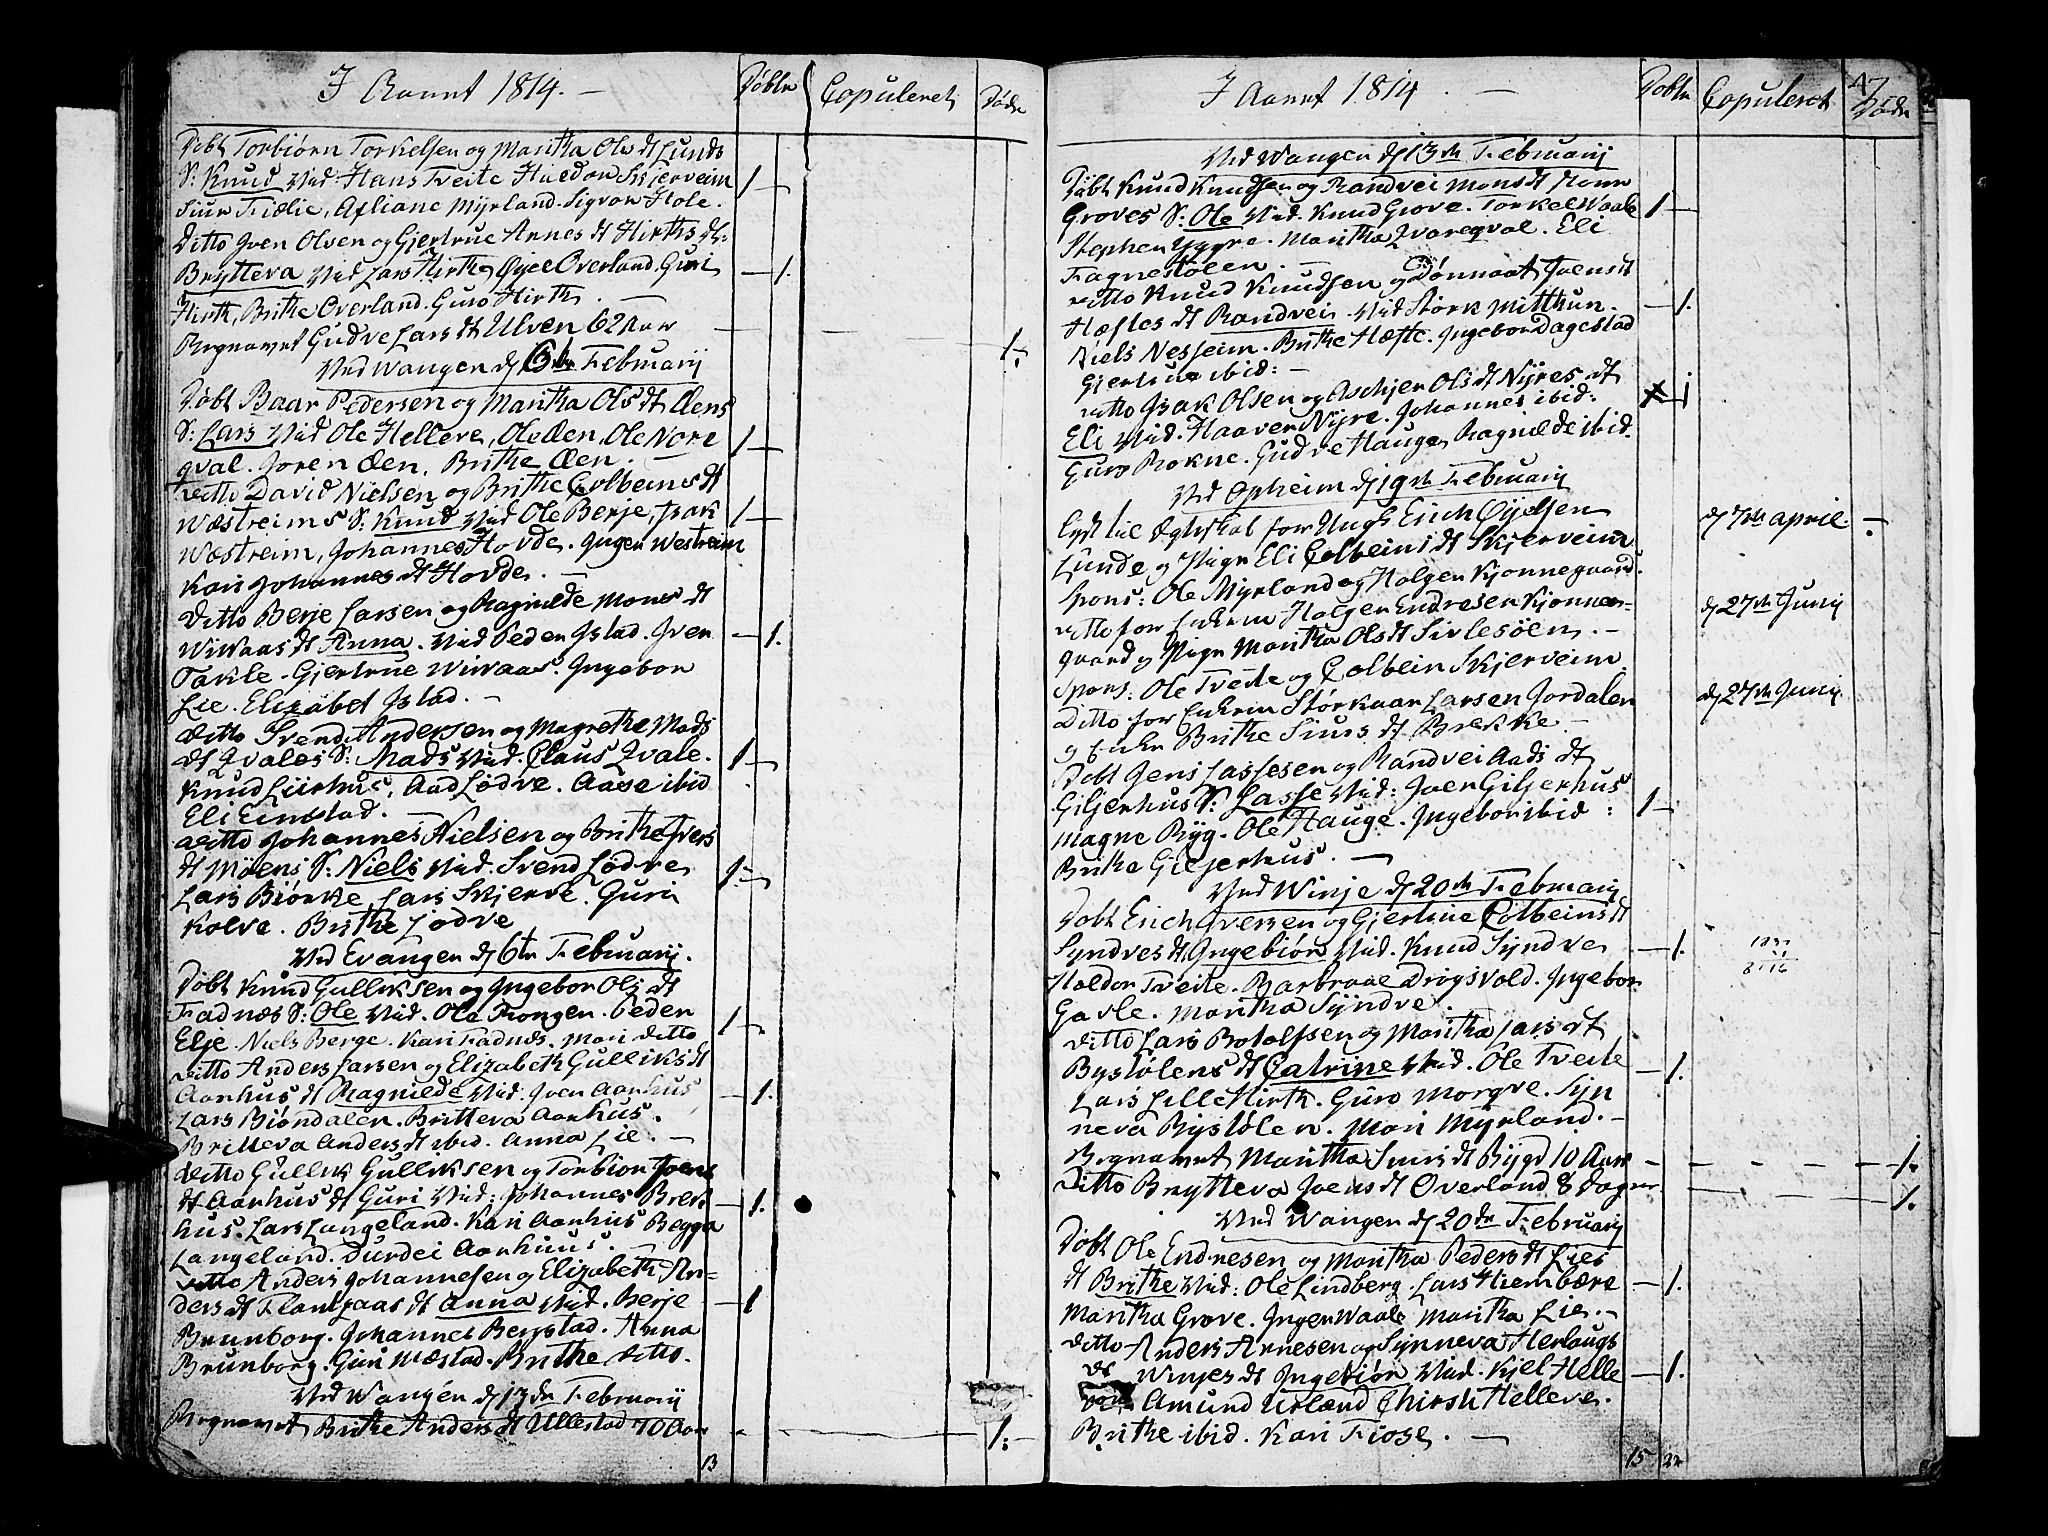 I Aaret 1814. —
Døbte
Copuleret
Døde
Døbt Torbiørn Torkelsen og Maritha Ols dt Lunds
S: Knud Vid: Hans Tveite Haldor Skjerveim 1 —
Siur Fiælie, Asliane Myrland. Sigvor Hole.
Ditto Iven Olsen og Gjertrue Annes dt Hirths dt:
Brytteva Vid Lars Hirth, Øyel Overland. Guri — 1.
Hirth, Brithe Overland. Guro Hirth. —
Begravet Gudve Lars dt Ulven 62 Aar — 1.
Ved Wangen d 6te Februarij
Døbt Baar Pedersen og Maritha Ols dt Æens
S: Lars Vid Ole Helleve, Ole Æen, Ole Nore 1 —
qval. Joren Æen. Brithe Æen. —
ditto David Nielsen og Brithe Colbeins dt
Wæstreims S: Knud Vid Ole Berje, Isak 1 —
Wæstreim, Johannes Hovde. Inger Westreim
Kari Johannes dt Hovde. —
Ditto Berje Larsen og Ragnilde Mons dt
Wiwaas dt Anna. Vid Peder Istad. Iver — 1.
Takle. Gjertrue Wiwaas. Ingebor
Lie. Elizabet Istad. —
ditto Svend Andersen og Magrethe Mads
dt Qvales S: Mads Vid. Claus Qvale. 1 —
Knud Liirhus, Aad Lødve. Aase ibid
Eli Einstad. —
ditto Johannes Nielsen og Brithe Ivers
dt Møens S: Niels Vid: Svend Lødve 1. —
Lars Biørke, Lars Skjerve. Guri
Kolve. Brithe Lødve
Ved Evangen d 6te Februarij.
Døbt Knud Gulliksen og Ingebor Ols dt
Fadnæs S: Ole Vid. Ole Rongen. Peder 1 —
Elje. Niels Berge. Kari Fadnæs. Mari ditto
ditto Anders Larsen og Elizabeth Gulliks dt
Aarhus dt Ragnilde Vid: Iver Aarhus — 1.
Lars Biøndalen. Britteva Aarhus.
Britteva Anders dt ibid. Anna Lie. —
ditto Gullik Gulliksen og Torbior Joens
dt Aarhus dt Guri Vid: Johannes Brek — 1.
hus. Lars Langeland. Kari Aarhus Bagga
Langeland. Durdei Aarhuus. —
ditto Anders Johannesen og Elizabeth An=
ders dt Flanljaas dt Anna Vid. Berje — 1
Brunborg. Johannes Berstad. Anna
Brunborg. Guri Mæstad. Brithe ditto.
Ved Wangen d 13de Februarij
Begravet Brithe Anders dt Ullestad 70 Aar — 1.
13
I Aaret 1814. —
Døbte
Copuleret
47
Døde
Ved Wangen d 13de Februarij
Døbt Knud Knudsen og Randvei Mons dt
Groves S: Ole Vid. Knud Grove. Torkel Waale 1 —
Stephen Yggre. Maritha Qvareqval. Eli
Fagnestølen. —
ditto Knud Knudsen og Dønnaat Joens dt
Hæftes dt Randvei. Vid Størk Mitthun. — 1.
Niels Nesheim. Brithe Hæfte. Ingebor Dagestad
Gjertrue ibid: —
ditto Isak Olsen og Aschjer Ols dt Nyres dt 1
Eli Vid. Haaver Nyre. Johannes ibid:
Guro Rokne. Gudve Hauge. Ragnilde ibid.
Ved Opheim d 19de Februarij
Lyst til Ægteskab for Ungk Erich Øyelsen d 7de april. —
Lunde og Pige Eli Colbeins dt Skjerveim
Spons: Ole Myrland og Holgen Kjonnegaard.
ditto for Enkem Holgen Endresen Kjonne= d 27de Junij
gaard og Pige Maritha Ols dt Sivlesøen. —
Spons: Ole Tveite og Colbein Skjerveim
Ditto for Enkem Størkaar Larsen Jordalen d 27de Junij
og Enke Brithe Siurs dt Brekke —
Døbt Jens Lassesen og Randvei Aads dt
Giljerhus S: Lasse Vid: Joen Giljerhus
Magne Ryg. Ole Hauge. Ingebor ibid: 1 —
Brithe Giljerhus. —
Ved Winje d 20de Februarij
Døbt Erich Iversen og Gjertrue Colbeins dt
Syndves dt Ingebiør Vid. Knud Syndve — 1.
Haldor Tveite. Barbraae Drøgsvold. Ingebor
Gavle. Maritha Syndve.
ditto Lars Botolfsen og Maritha Lars dt
Bystølens dt Catrine Vid. Ole Tveite — 1.
Lars Lille Hirth. Guro Morqve. Syn
neva Bystølen. Mari Myrland. —
Begravet Maritha Siurs dt Bygd 10 Aar — 1.
Ditto Brytteva Joens dt Overland 8 Dager — 1.
Ved Wangen d 20de Februarij
Døbt Ole Endresen og Maritha Peders dt Lies
dt Brithe Vid: Ole Lindberg. Lars Hiembære — 1.
Maritha Grove. Inger Waale Maritha Lie. —
ditto Anders Arnesen og Synneva Herlaugs
dt Winjes dt Ingebiør Vid. Kjel Helle — 1.
Amund Urland Chirsti Helleve.
Brithe ibid. Kari Fiose. —
15 22